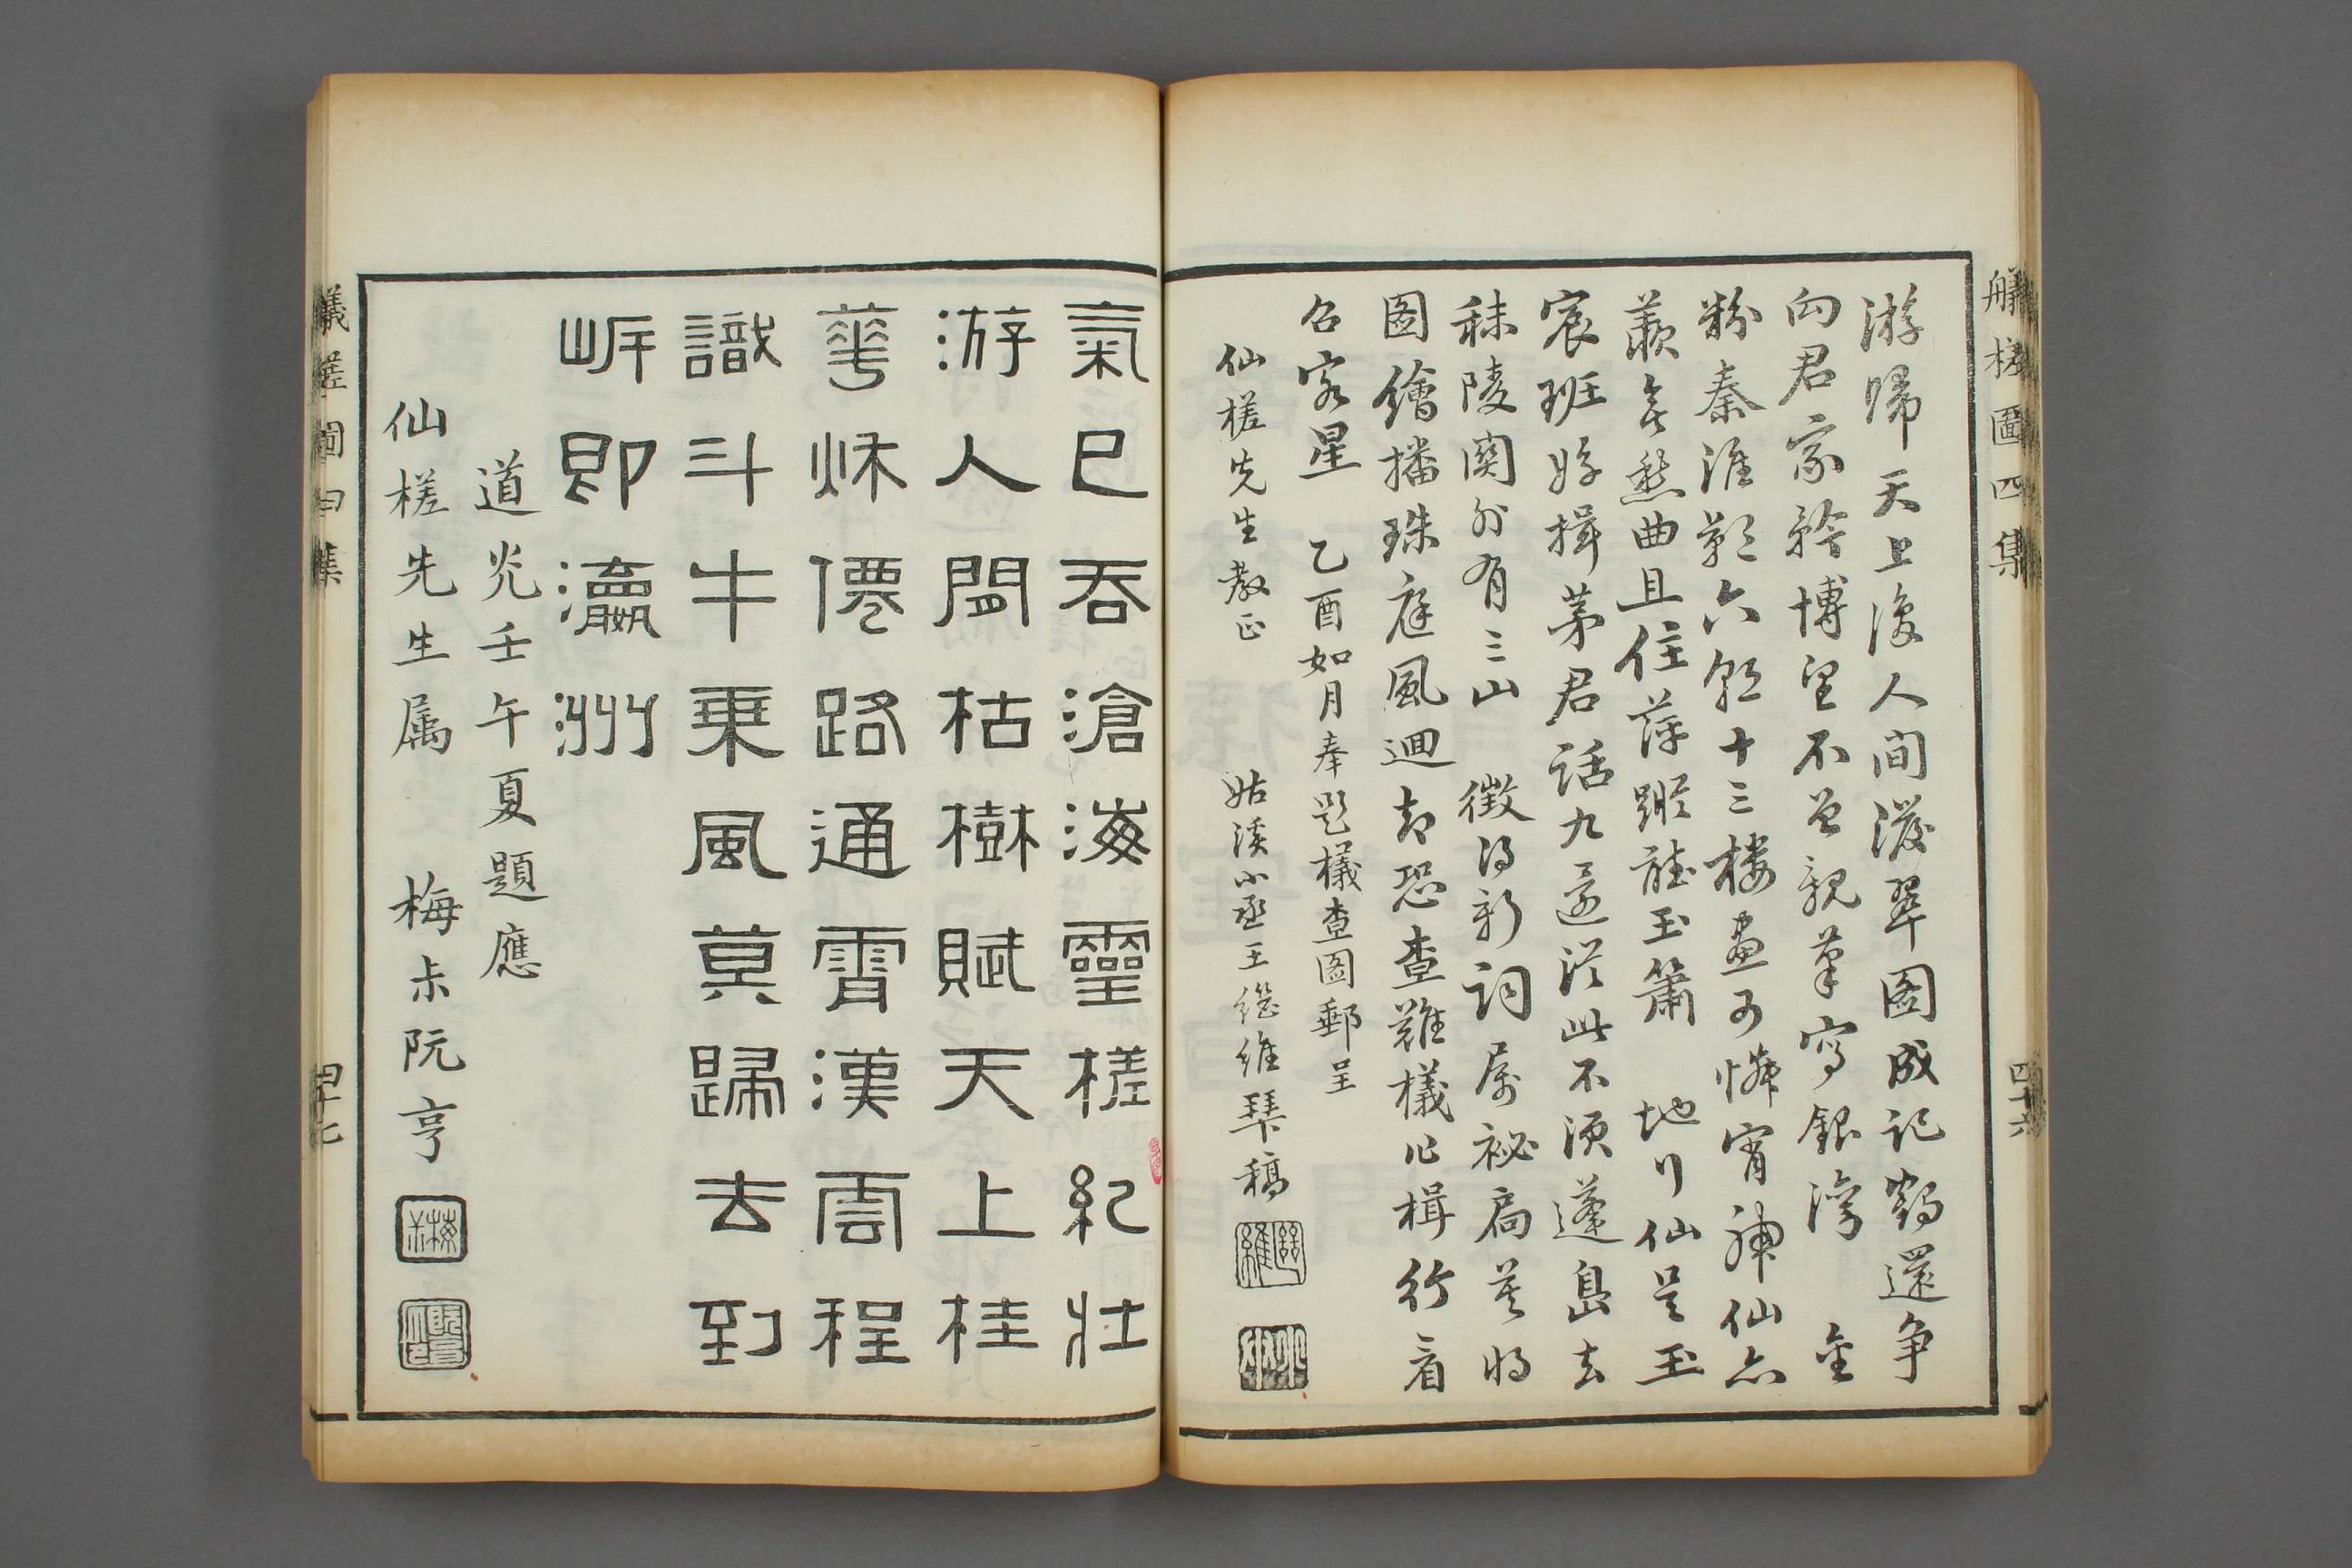 艤槎圖四集
游歸天上後人間潑翠圖成記鶴還爭
向君家辭博望不曾親筆寫銀灣 金
粉秦淮鄭六朝十三樓畫可憐宵神仙亦
厭无愁曲且住萍蹤聽玉簫 地行仙是玉
宸班好揖茅君話九還從此不須蓬島去
秣陵關外有三山 徵得新詞屬祕扃莫將
圖繪播珠庭風迴却恐查難艤作楫行看
召客星 乙酉如月奉題艤查圖郵呈
仙槎先生教正 姑溪小丞王繼維琹稿
四十六
氣已吞滄海靈槎紀壯
游人間枯樹賦天上桂
華秌僊路通霄漢雲程
識斗牛乗風莫歸去到
岸即瀛洲
道光壬午夏題應
仙槎先生属 梅尗阮亨
艤槎圖四集
四十七